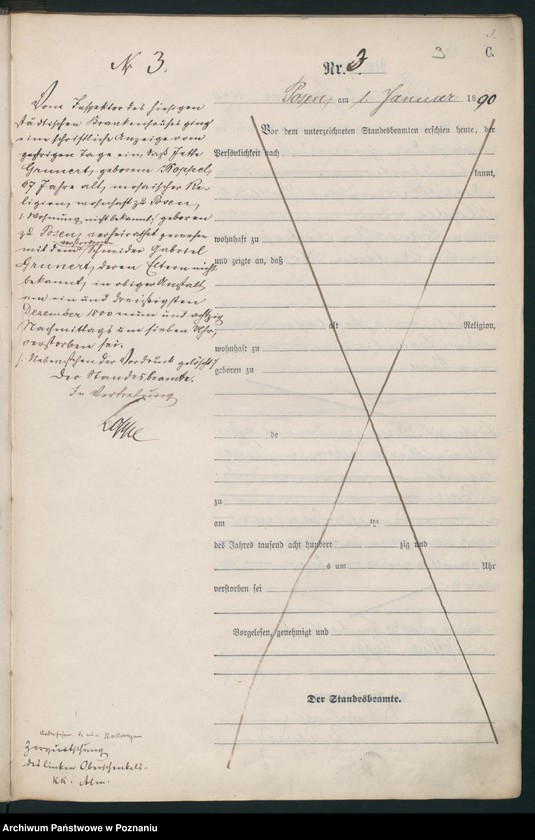 3.
3
C.
Nr. 3
Posen, am 1. Januar 1890
N 3.
Vom Inspektor des hiesigen
städtischen Krankenhauses ging
eine schriftliche Anzeige vom
gestrigen Tage ein, daß Jette
Grunert, geborene Koppel,
67 Jahre alt, mosaischer Re-
ligion, wohnhaft zu Posen,
/: Wohnung nicht bekannt, geboren
zu Posen, verheirathet gewesen
mit dem verstorbenen Schneider Gabriel
Grunert, deren Eltern nicht
bekannt, in obiger Anstalt,
am ein und dreißigsten
Dezember 1800 neun und achtzig
Nachmittags um sieben Uhr,
verstorben sei.
/: Nebenstehender Vordruck gelöscht /
Der Standesbeamte.
In Vertretung
Vor dem unterzeichneten Standesbeamten erschien heute, der
Persönlichkeit nach
kannt,
wohnhaft zu
und zeigte an, daß
alt Religion,
wohnhaft zu
geboren zu
de
zu
am ten
des Jahres tausend acht hundert zig und
s um Uhr
verstorben sei
Vorgelesen, genehmigt und
Der Standesbeamte.
des linken Oberschenkels.
Archiwum Państwowe w Poznaniu